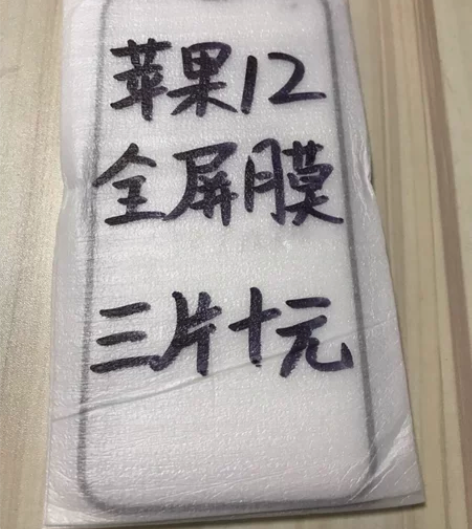 苹果12
全屏膜
三片十元